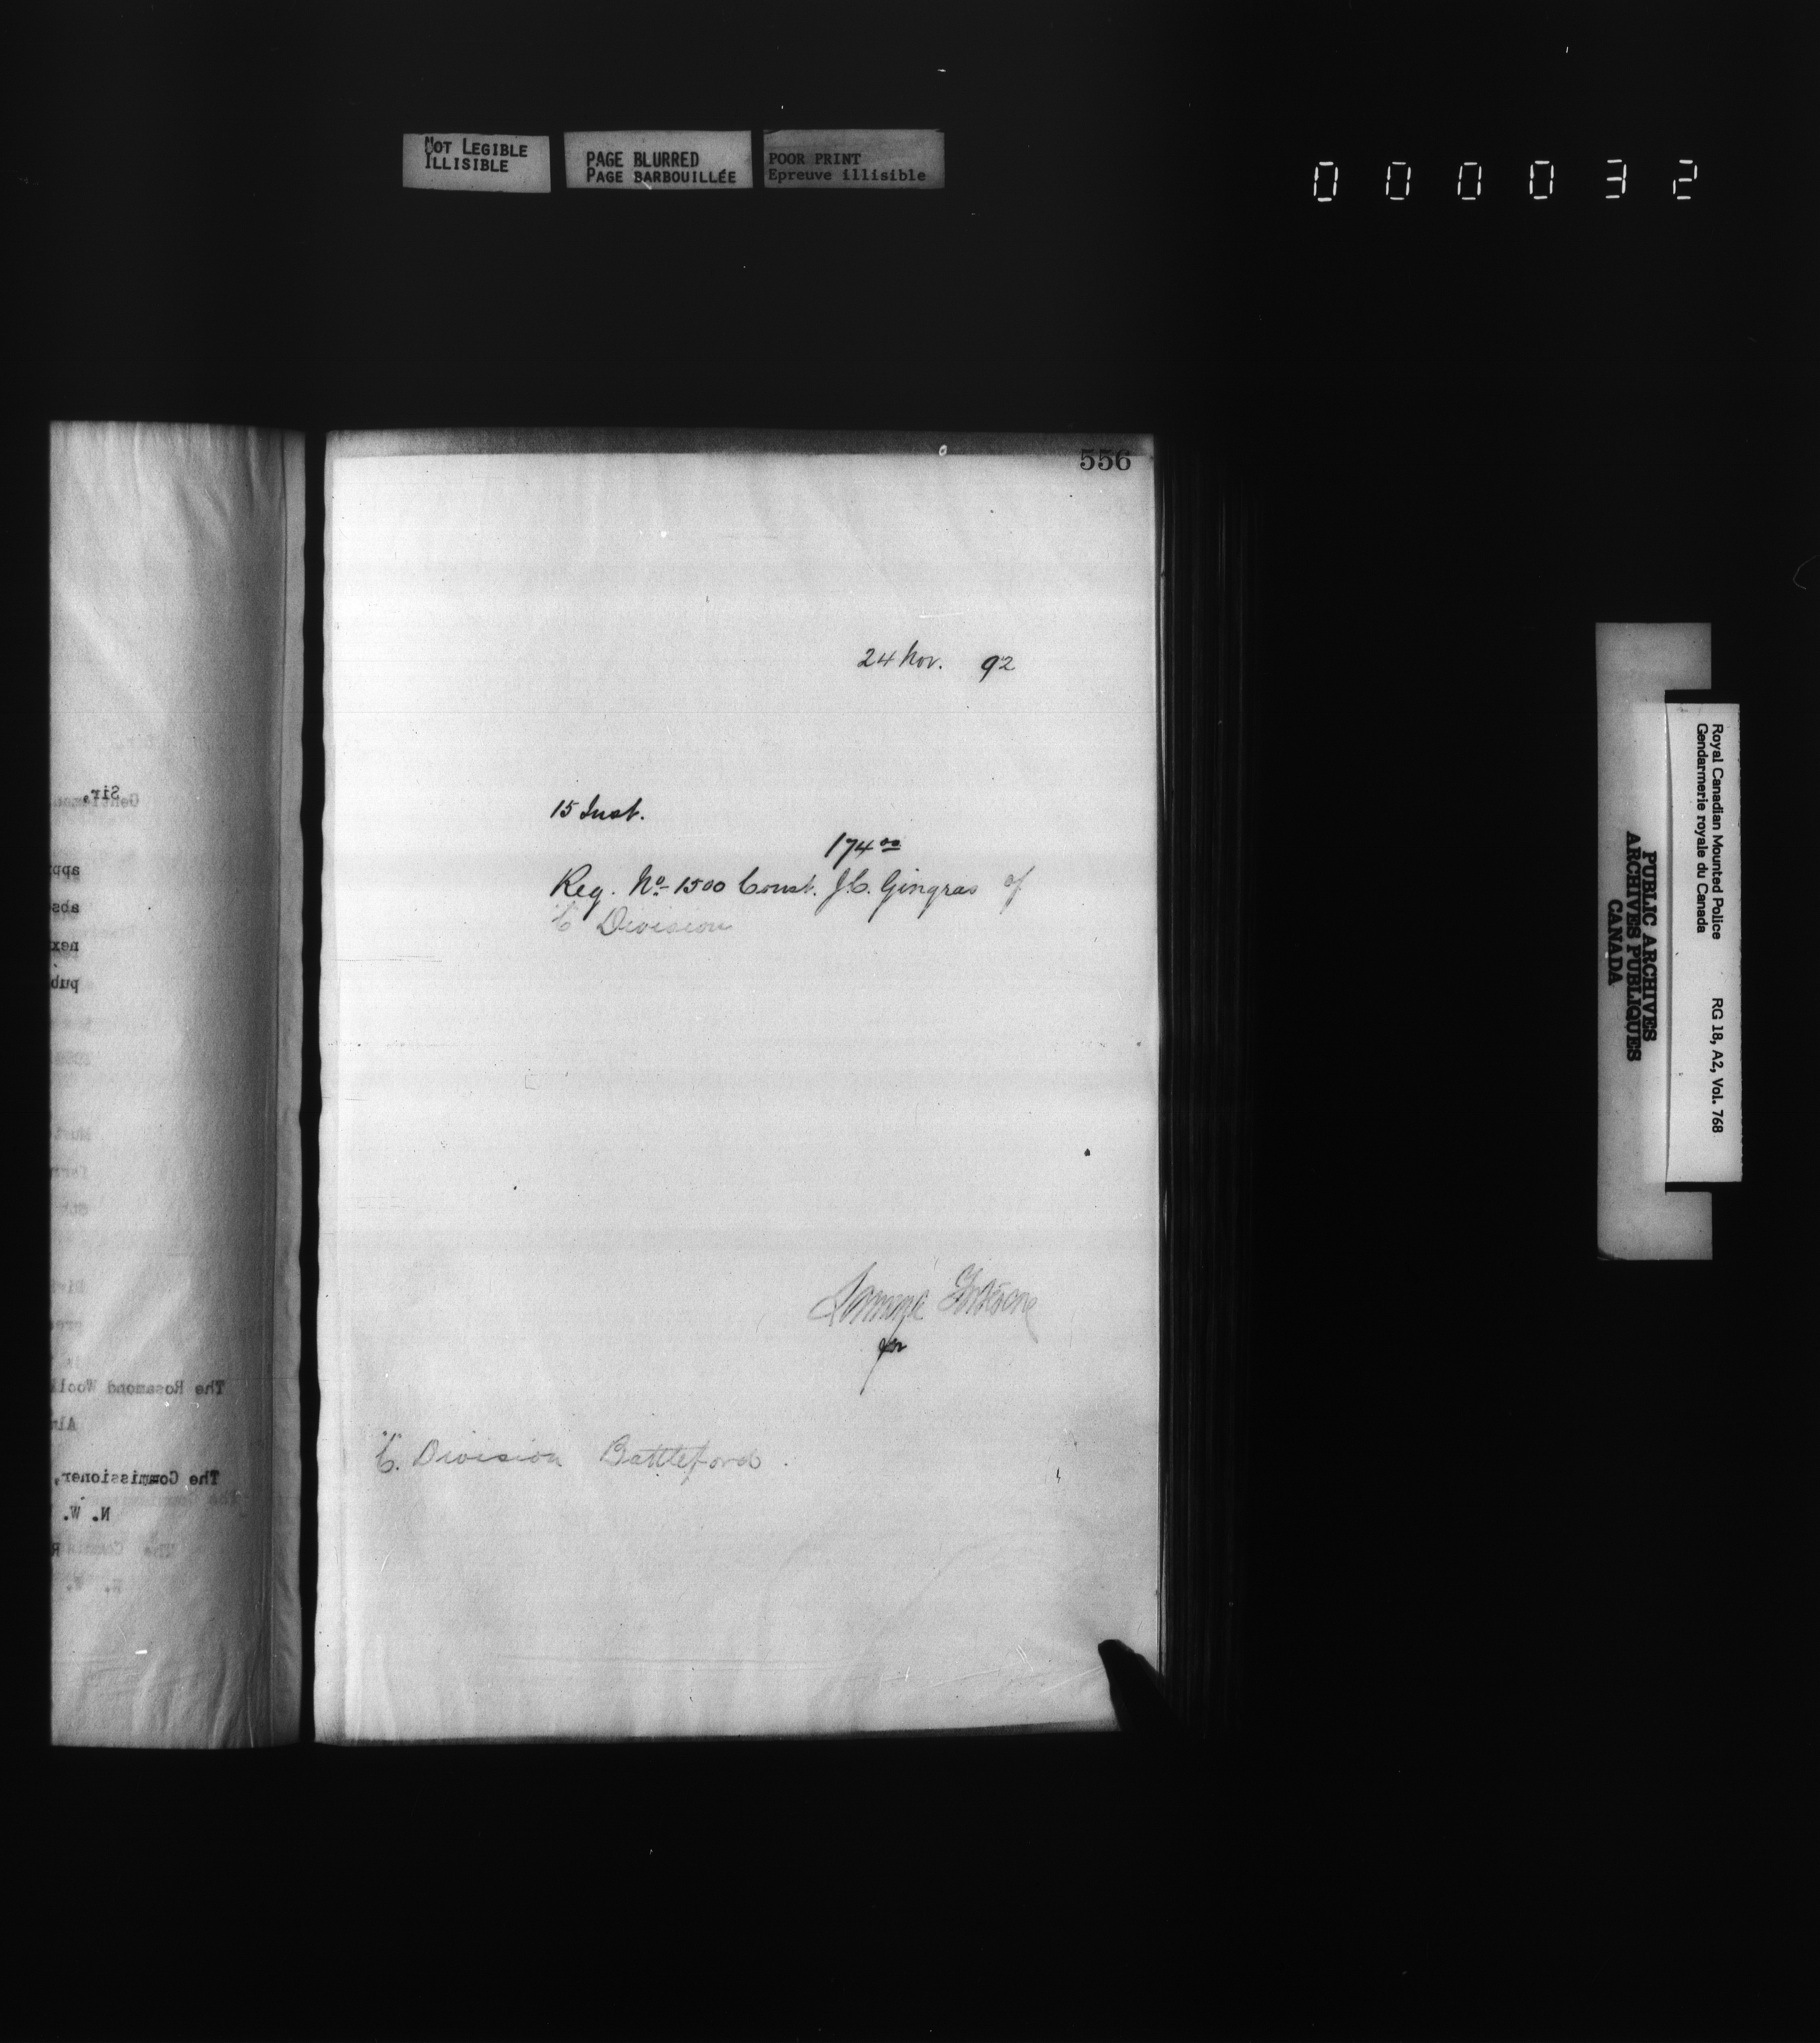 NOT LEGIBLE
ILLISIBLE
PAGE BLURRED
PAGE BARBOUILLÉE
POOR PRINT
Epreuve illisible
000032
556
24 Nov. 92
15 Inst.
174 00
Reg. No. 1500 Const. J.C. Gingras of
"C" Division
for
"C" Division Battleford.
Sir,
Gentlemen
app
abs
nex
pub
The Rosamond Wool
Alm
The Commissioner,
N. W.
The Commis
Royal Canadian Mounted Police RG 18, A2, Vol. 768
Gendarmerie royale du Canada
PUBLIC ARCHIVES
ARCHIVES PUBLIQUES
CANADA